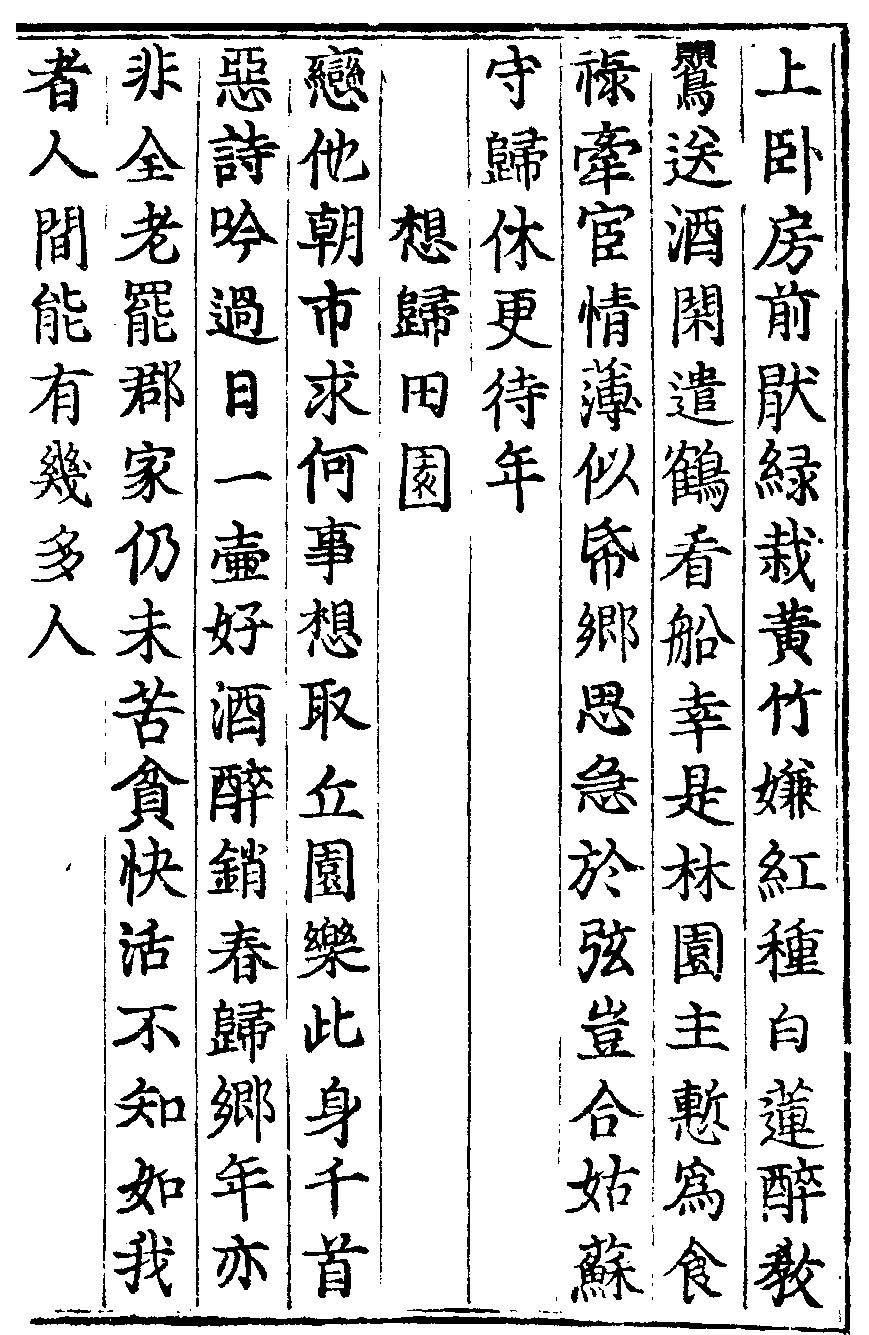 上卧房前猒緑栽黄竹嫌紅種白蓮醉教
鸎送酒閑遣鶴看船幸是林園主慙為食
禄牽宦情薄似帋郷思急於弦豈合姑蘇
守歸休更待年
想歸田園
戀他朝市求何事想取丘園樂此身千首
惡詩吟過日一壷好酒醉銷春歸郷年亦
非全老罷郡家仍未苦貧快活不知如我
者人間能有幾多人